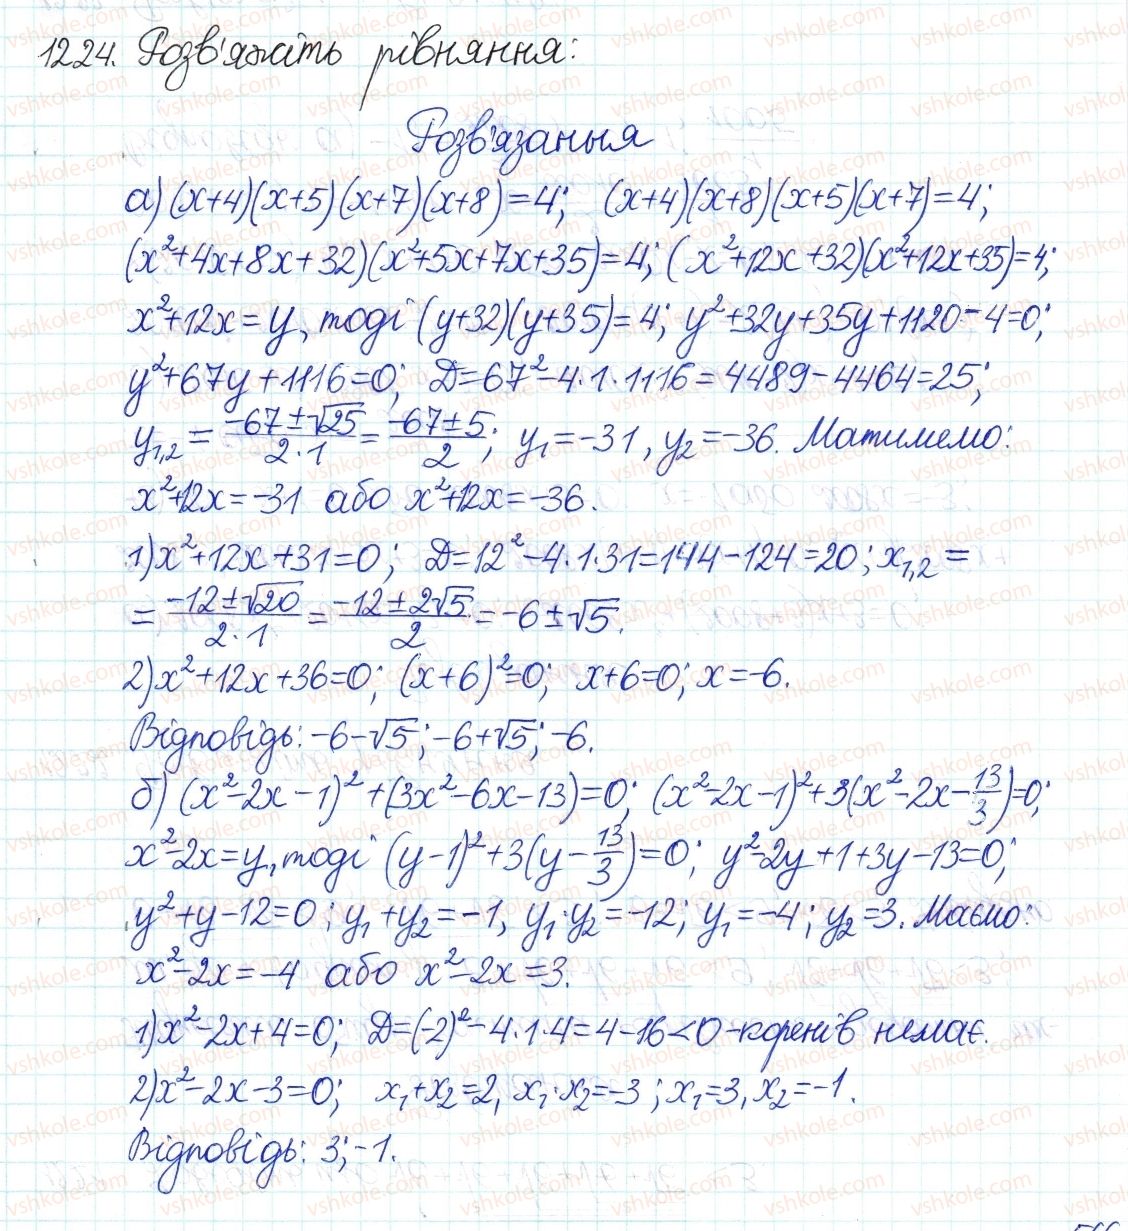 1224. Розв'яжіть рівняння:
Розв'язання
а) (x+4)(x+5)(x+7)(x+8)=4; (x+4)(x+8)(x+5)(x+7)=4;
(x²+4x+8x+32)(x²+5x+7x+35)=4; (x²+12x+32)(x²+12x+35)=4;
x²+12x=y, тоді (y+32)(y+35)=4; y²+32y+35y+1120-4=0;
y²+67y+1116=0; Д=67²-4·1·1116=4489-4464=25;
y₁,₂ = (-67±√25)/(2·1) = (-67±5)/2; y₁=-31, y₂=-36. Матимемо:
x²+12x=-31 або x²+12x=-36.
1) x²+12x+31=0; Д=12²-4·1·31=144-124=20; x₁,₂ =
= (-12±√20)/(2·1) = (-12±2√5)/2 = -6±√5.
2) x²+12x+36=0; (x+6)²=0; x+6=0; x=-6.
Відповідь: -6-√5; -6+√5; -6.
б) (x²-2x-1)²+(3x²-6x-13)=0; (x²-2x-1)²+3(x²-2x-13/3)=0;
x²-2x=y, тоді (y-1)²+3(y-13/3)=0; y²-2y+1+3y-13=0;
y²+y-12=0; y₁+y₂=-1, y₁·y₂=-12; y₁=-4; y₂=3. Маємо:
x²-2x=-4 або x²-2x=3.
1) x²-2x+4=0; Д=(-2)²-4·1·4=4-16<0 - коренів немає.
2) x²-2x-3=0; x₁+x₂=2, x₁·x₂=-3; x₁=3, x₂=-1.
Відповідь: 3; -1.